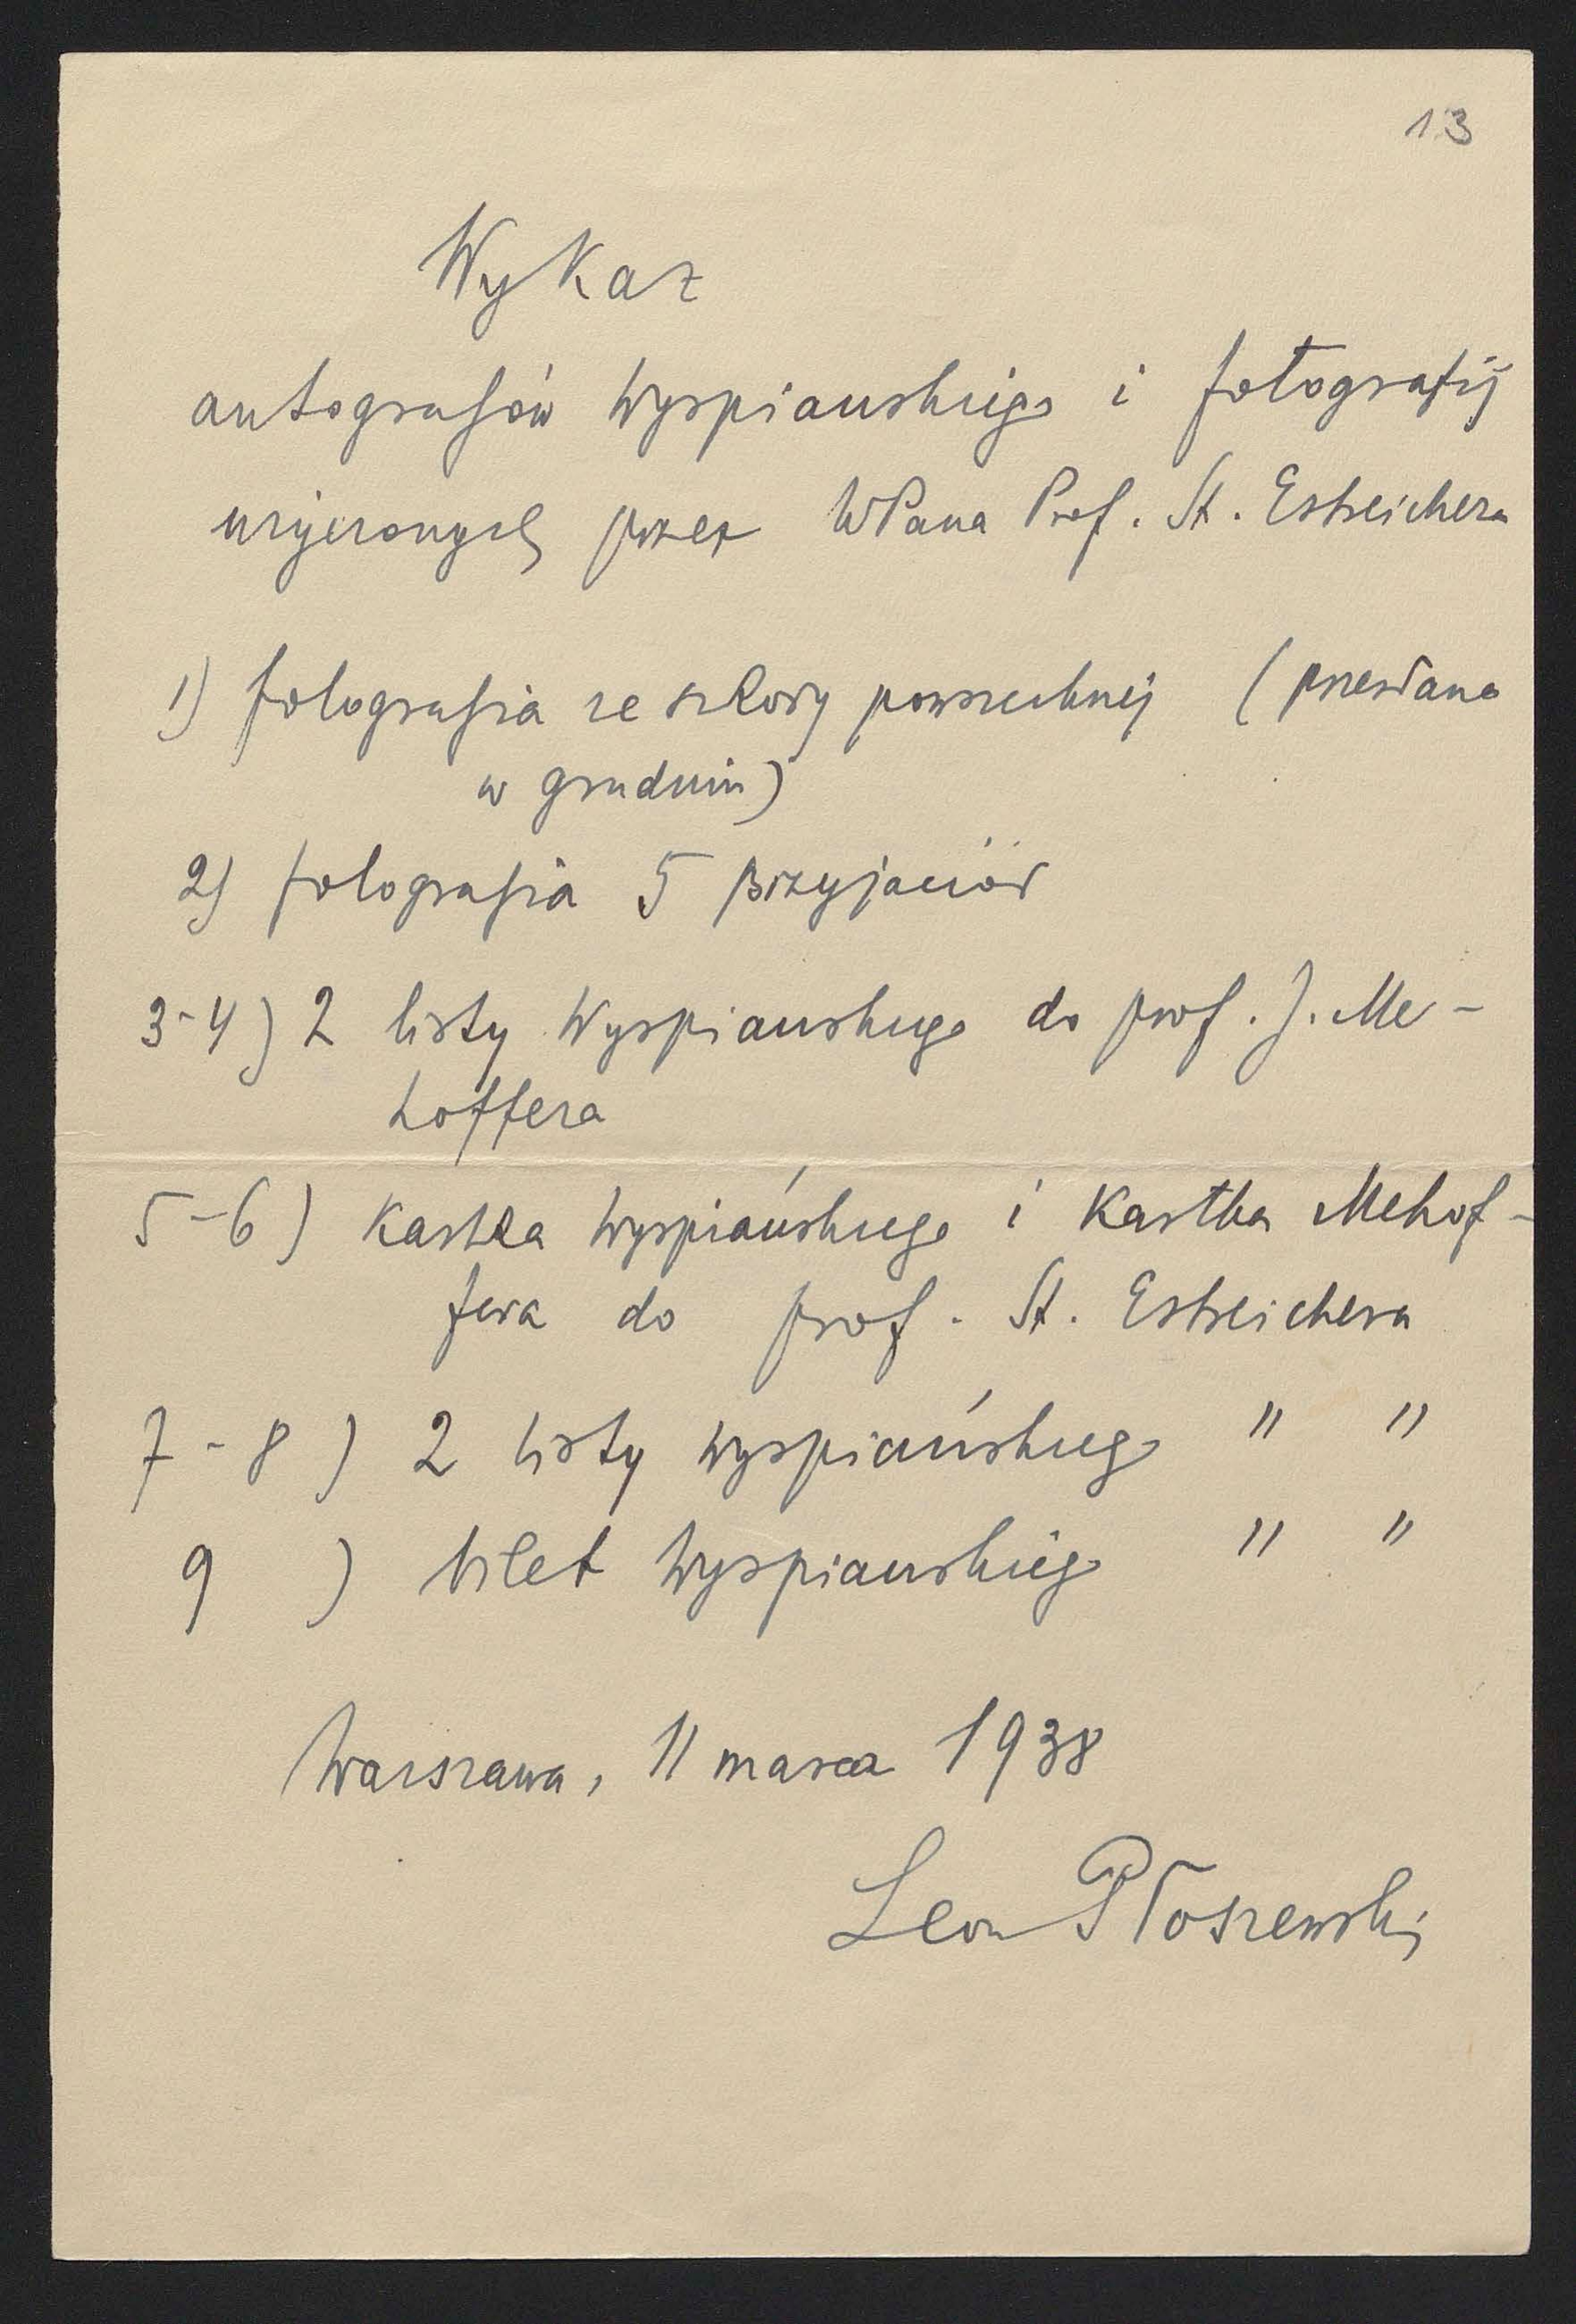 13
Wykaz
autografów Wyspiańskiego i fotografij
użyczonych przez WPana Prof. St. Estreichera
1) fotografia ze szkoły powszechnej (przesłana
w grudniu)
2) fotografia 5 przyjaciół
3-4) 2 listy Wyspiańskiego do prof. J. Me-
hoffera
5-6) Kartka Wyspiańskiego i Kartka Mehof-
fera do prof. St. Estreichera
7-8) 2 listy Wyspiańskiego " "
9 ) bilet Wyspiańskiego " "
Warszawa, 11 marca 1938
Leon Płoszewski